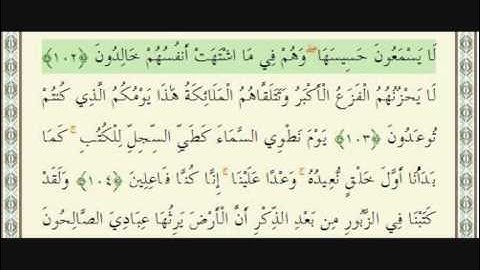 لَا يَسْمَعُونَ حَسِيسَهَا ۖ وَهُمْ فِي مَا اشْتَهَتْ أَنفُسُهُمْ خَالِدُونَ ﴿١٠٢﴾
لَا يَحْزُنُهُمُ الْفَزَعُ الْأَكْبَرُ وَتَتَلَقَّاهُمُ الْمَلَائِكَةُ هَٰذَا يَوْمُكُمُ الَّذِي كُنتُمْ
تُوعَدُونَ ﴿١٠٣﴾ يَوْمَ نَطْوِي السَّمَاءَ كَطَيِّ السِّجِلِّ لِلْكُتُبِ ۚ كَمَا
بَدَأْنَا أَوَّلَ خَلْقٍ نُّعِيدُهُ ۚ وَعْدًا عَلَيْنَا ۚ إِنَّا كُنَّا فَاعِلِينَ ﴿١٠٤﴾ وَلَقَدْ
كَتَبْنَا فِي الزَّبُورِ مِن بَعْدِ الذِّكْرِ أَنَّ الْأَرْضَ يَرِثُهَا عِبَادِيَ الصَّالِحُونَ